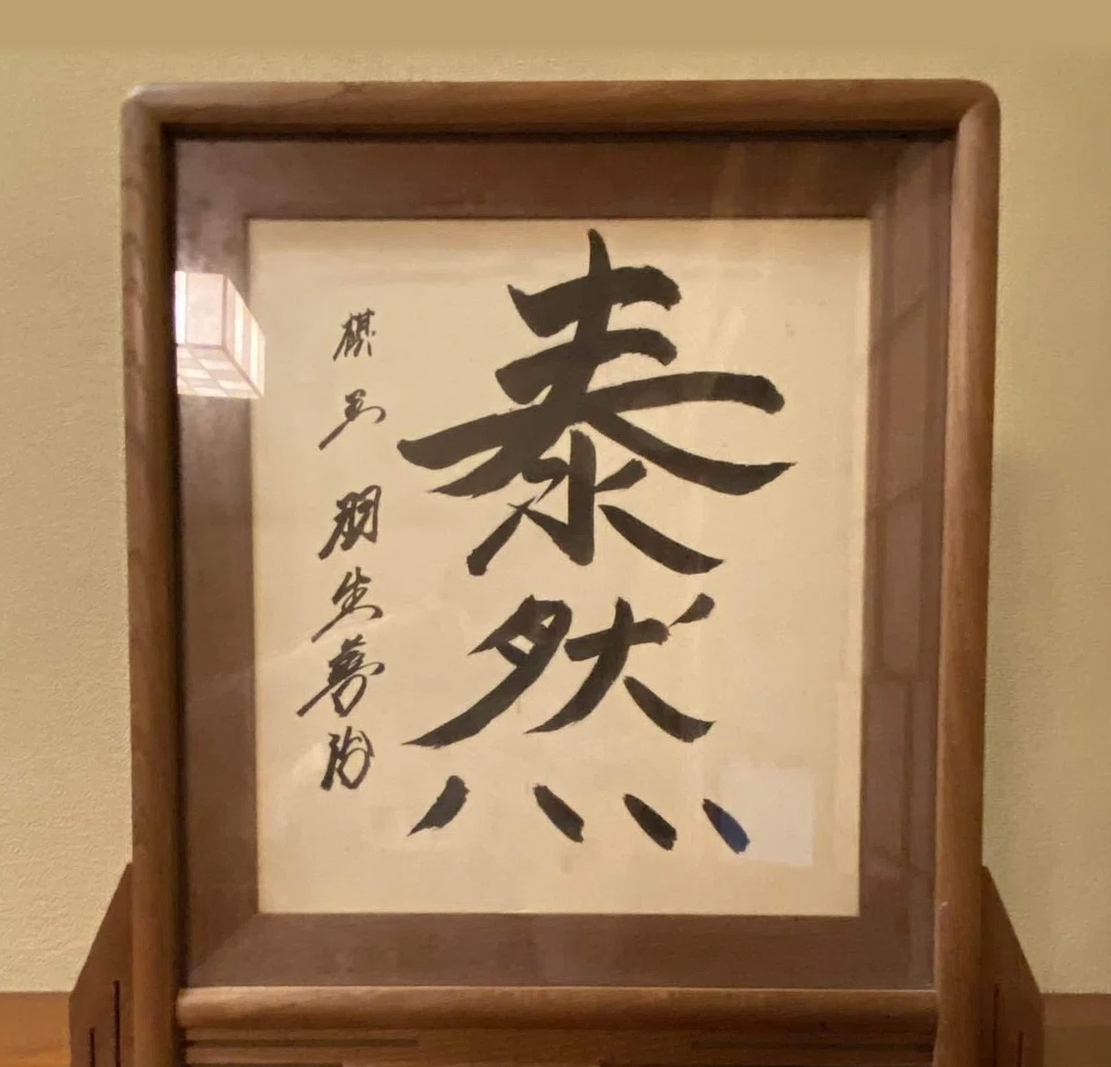 泰然
棋王 羽生善治